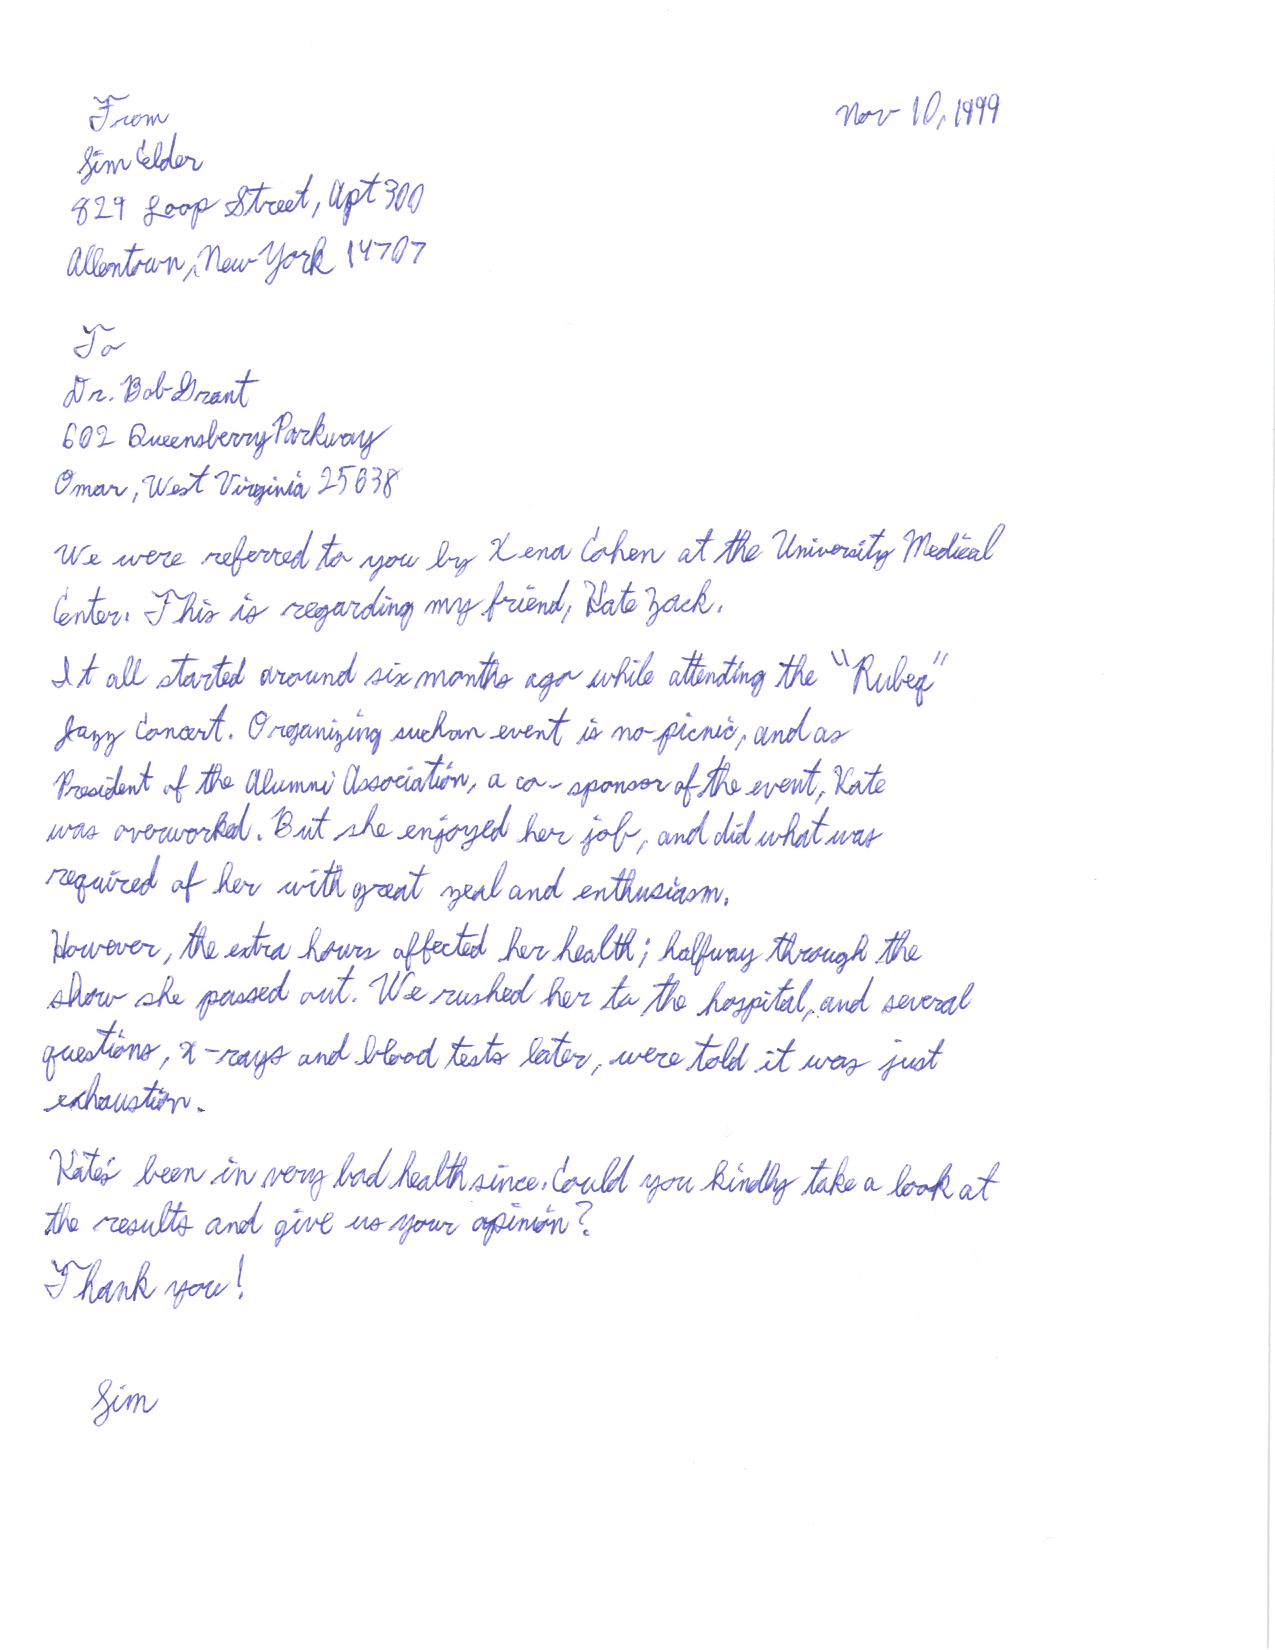 From
Nov 10, 1999
Jim Elder
829 Loop Street, Apt 300
Allentown, New York 14707
To
Dr. Bob Grant
602 Queensberry Parkway
Omar, West Virginia 25638
We were referred to you by Xena Cohen at the University Medical
Center. This is regarding my friend, Kate Zack.
It all started around six months ago while attending the "Rubeq"
Jazz Concert. Organizing such an event is no picnic, and as
President of the Alumni Association, a co-sponsor of the event, Kate
was overworked. But she enjoyed her job, and did what was
required of her with great zeal and enthusiasm.
However, the extra hours affected her health; halfway through the
show she passed out. We rushed her to the hospital, and several
questions, x-rays and blood tests later, were told it was just
exhaustion.
Kate's been in very bad health since. Could you kindly take a look at
the results and give us your opinion?
Thank you!
Jim